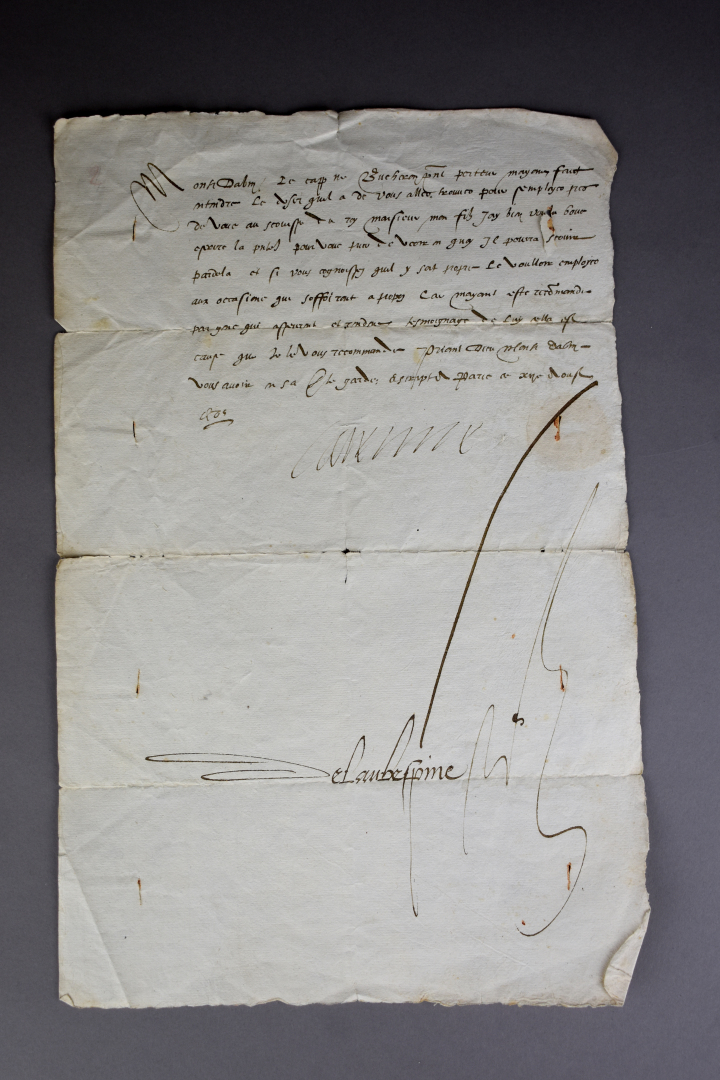 Monsr Dalby Le cappne porteur mayant faict
entendre Le desir quil a de vous aller trouver pour semployer pres
de vous au service du roy monsieur mon filz Jay bien voulu vous
escrire la pnte pour vous prier de veoir en quoy Il pourra servir
pardela et si vous cognoissez quil y soit propre Le voulloir employer
aux occasions qui soffriront a propos Car mayant este recommande
par gens qui asseurent et rendent tesmoignage de luy cella est
cause que Je le vous recommande Priant Dieu Monsr
vous avoir en sa ste garde Escript a Paris ce jour daoust
Caterine
Delaubespine